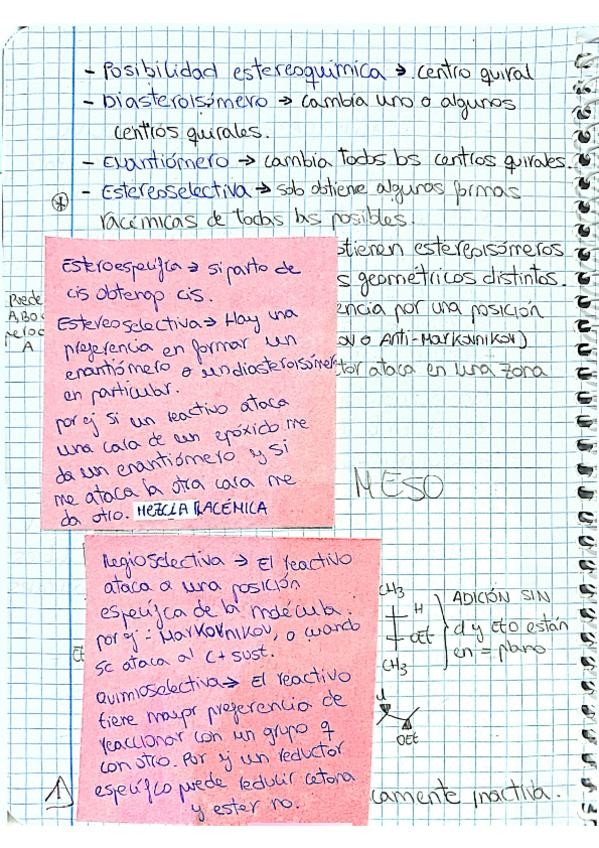 - Posibilidad estereoquímica → centro quiral
- Diasteroisómero → cambia uno o algunos
centros quirales.
- Enantiómero → cambia todos los centros quirales.
- Estereoselectiva → solo obtiene algunas formas
racémicas de todas las posibles.
Esteroespecífica → si parto de
cis obtengo cis.
Estereoselectiva → Hay una
preferencia en formar un
enantiómero o un diasteroisómero
en particular.
por ej si un reactivo ataca
una cara de un epóxido me
da un enantiómero y si
me ataca la otra cara me
da otro. MEZCLA RACÉMICA
stienen estereoisómeros
s geométricos distintos.
encia por una posición
ov o Anti-Markovnikov)
tor ataca en una zona
Puede
A
MESO
Regioselectiva → El reactivo
ataca a una posición
específica de la molécula.
por ej: Markovnikov, o cuando
se ataca al C + sust.
Quimioselectiva → El reactivo
tiene mayor preferencia de
reaccionar con un grupo q
con otro. Por ej un reductor
específico puede reducir cetona
y ester no.
CH3
H
OEt
CH3
ADICIÓN SIN
cl y EtO están
en = plano
OEt
camente inactiva.